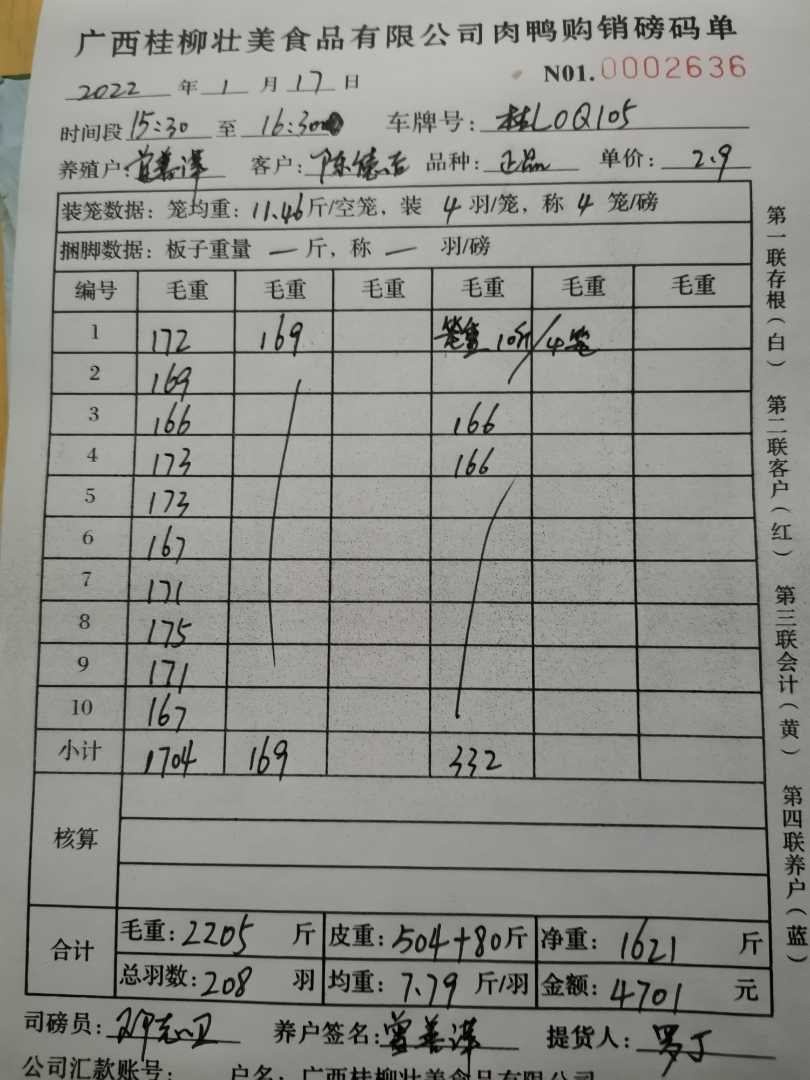 广西桂柳壮美食品有限公司肉鸭购销磅码单
2022 年 1 月 17 日 N01.0002636
时间段 15:30 至 16:30 车牌号: 桂L0Q105
养殖户: 曾善泽 客户: 品种: 正品 单价: 2.9
装笼数据: 笼均重: 11.46斤/空笼, 装 4 羽/笼, 称 4 笼/磅
捆脚数据: 板子重量 一 斤, 称 一 羽/磅
编号 毛重 毛重 毛重 毛重 毛重 毛重
1 172 169 笼重 10斤/4笼
2 169
3 166 166
4 173 166
5 173
6 167
7 171
8 175
9 171
10 167
小计 1704 169 332
核算
合计 毛重: 2205 斤 皮重: 504+80斤 净重: 1621 斤
总羽数: 208 羽 均重: 7.79 斤/羽 金额: 4701 元
司磅员: 养户签名: 曾善泽 提货人: 罗丁
公司汇款账号: 户名: 广西桂柳壮美食品有限公司
第一联存根(白) 第二联客户(红) 第三联会计(黄) 第四联养户(蓝)